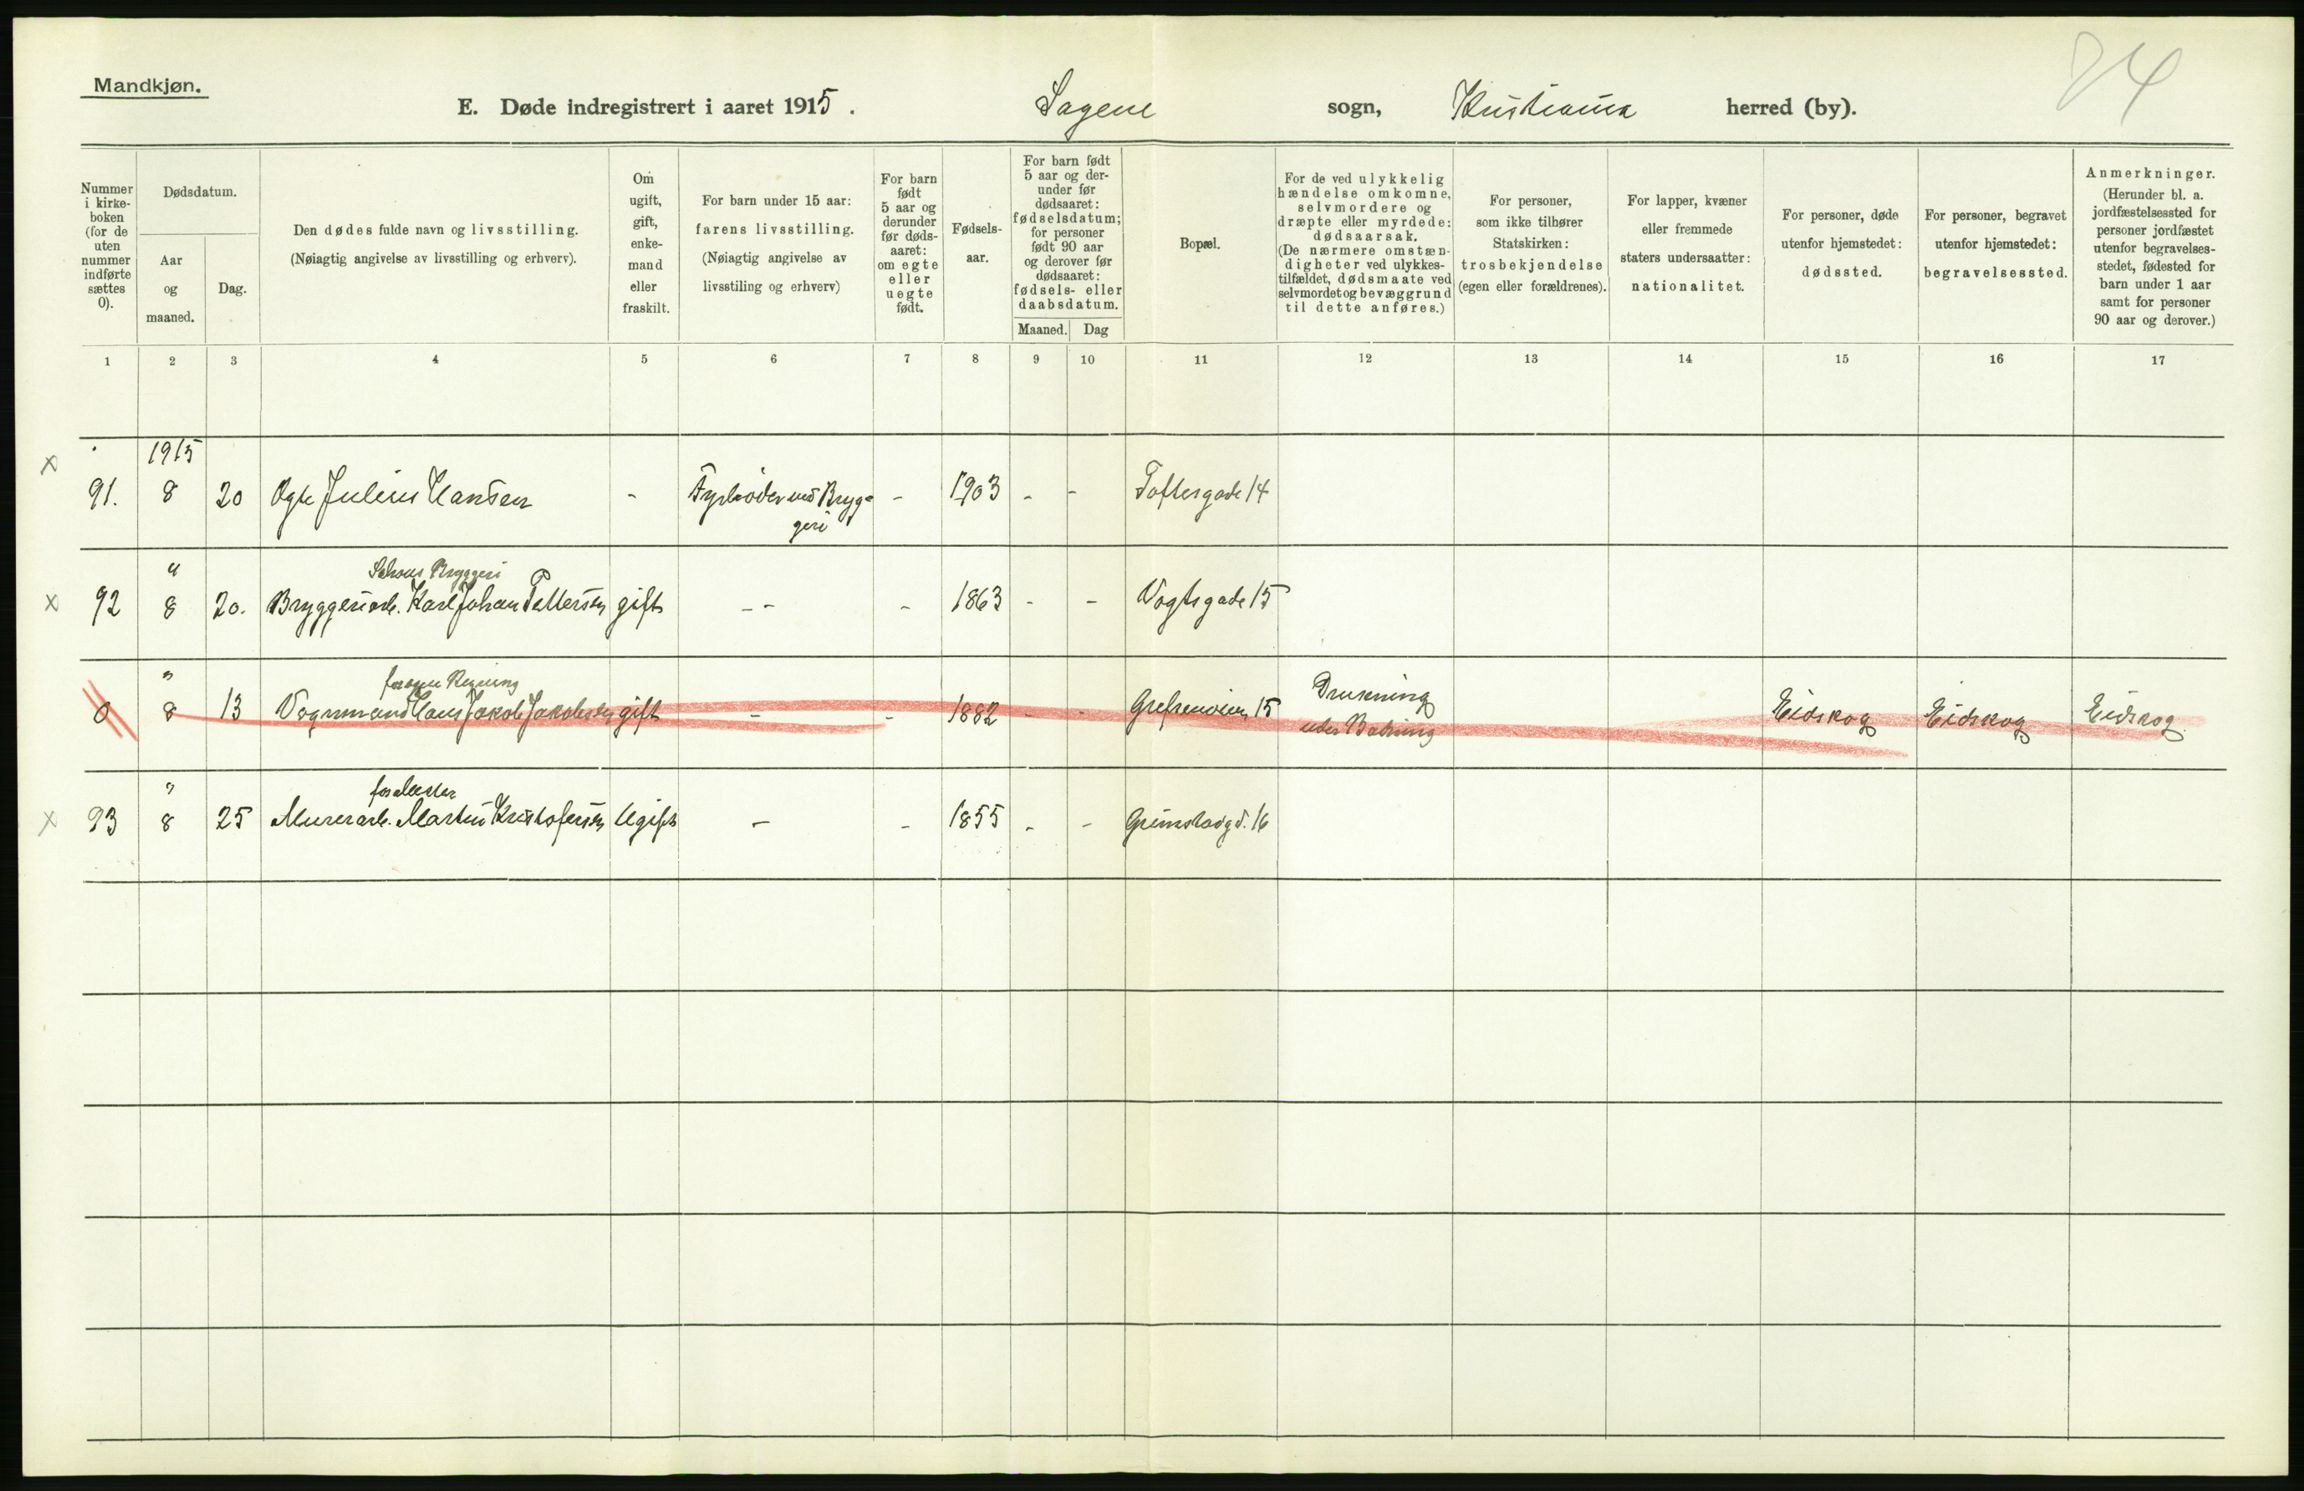 Mandkjøn.
E. Døde indregistrert i aaret 1915. Sagene sogn, Kristiania herred (by).
24
Nummer i kirke-boken (for de uten nummer indførte sættes 0).
Dødsdatum.
Aar og maaned.
Dag.
Den dødes fulde navn og livsstilling.
(Nøiagtig angivelse av livsstilling og erhverv).
Om ugift, gift, enke-mand eller fraskilt.
For barn under 15 aar:
farens livsstilling.
(Nøiagtig angivelse av
livsstiling og erhverv)
For barn født 5 aar og derunder før døds-aaret: om egte eller uegte født.
Fødsels-aar.
For barn født 5 aar og der-under før dødsaaret: fødselsdatum; for personer født 90 aar og derover før dødsaaret: fødsels- eller daabsdatum.
Maaned. Dag
Bopæl.
For de ved ulykkelig hændelse omkomne, selvmordere og dræpte eller myrdede: dødsaarsak. (De nærmere omstæn-digheter ved ulykkes-tilfældet, dødsmaate ved selvmordet og bevæggrund til dette anføres.)
For personer, som ikke tilhører Statskirken: trosbekjendelse (egen eller forældrenes).
For lapper, kvæner eller fremmede staters undersaatter: nationalitet.
For personer, døde utenfor hjemstedet: dødssted.
For personer, begravet utenfor hjemstedet: begravelsessted.
Anmerkninger.
(Herunder bl. a. jordfæstelsessted for personer jordfæstet utenfor begravelses-stedet, fødested for barn under 1 aar samt for personer 90 aar og derover.)
1 2 3 4 5 6 7 8 9 10 11 12 13 14 15 16 17
1915
x 91. 8 20 Julius Hansen - Fyrbøder ved Bryg-geri - 1903 - - Toftesgade 14
" Schous Bryggeri
x 92 8 20. Bryggeriarb. Karl Johan Pettersen gift - - - 1863 - - Vogtsgade 15
" for egen Regning
0 8 13 Vognmand Hans Jakob Jakobsen gift - - 1882 - - Grefsenveien 15 Drukning under Badning Eidskog Eidskog Eidskog
" for Mester
x 93 8 25 Murerarb. Martin Kristofersen Ugift - - 1855 - - Grimstadgd. 16